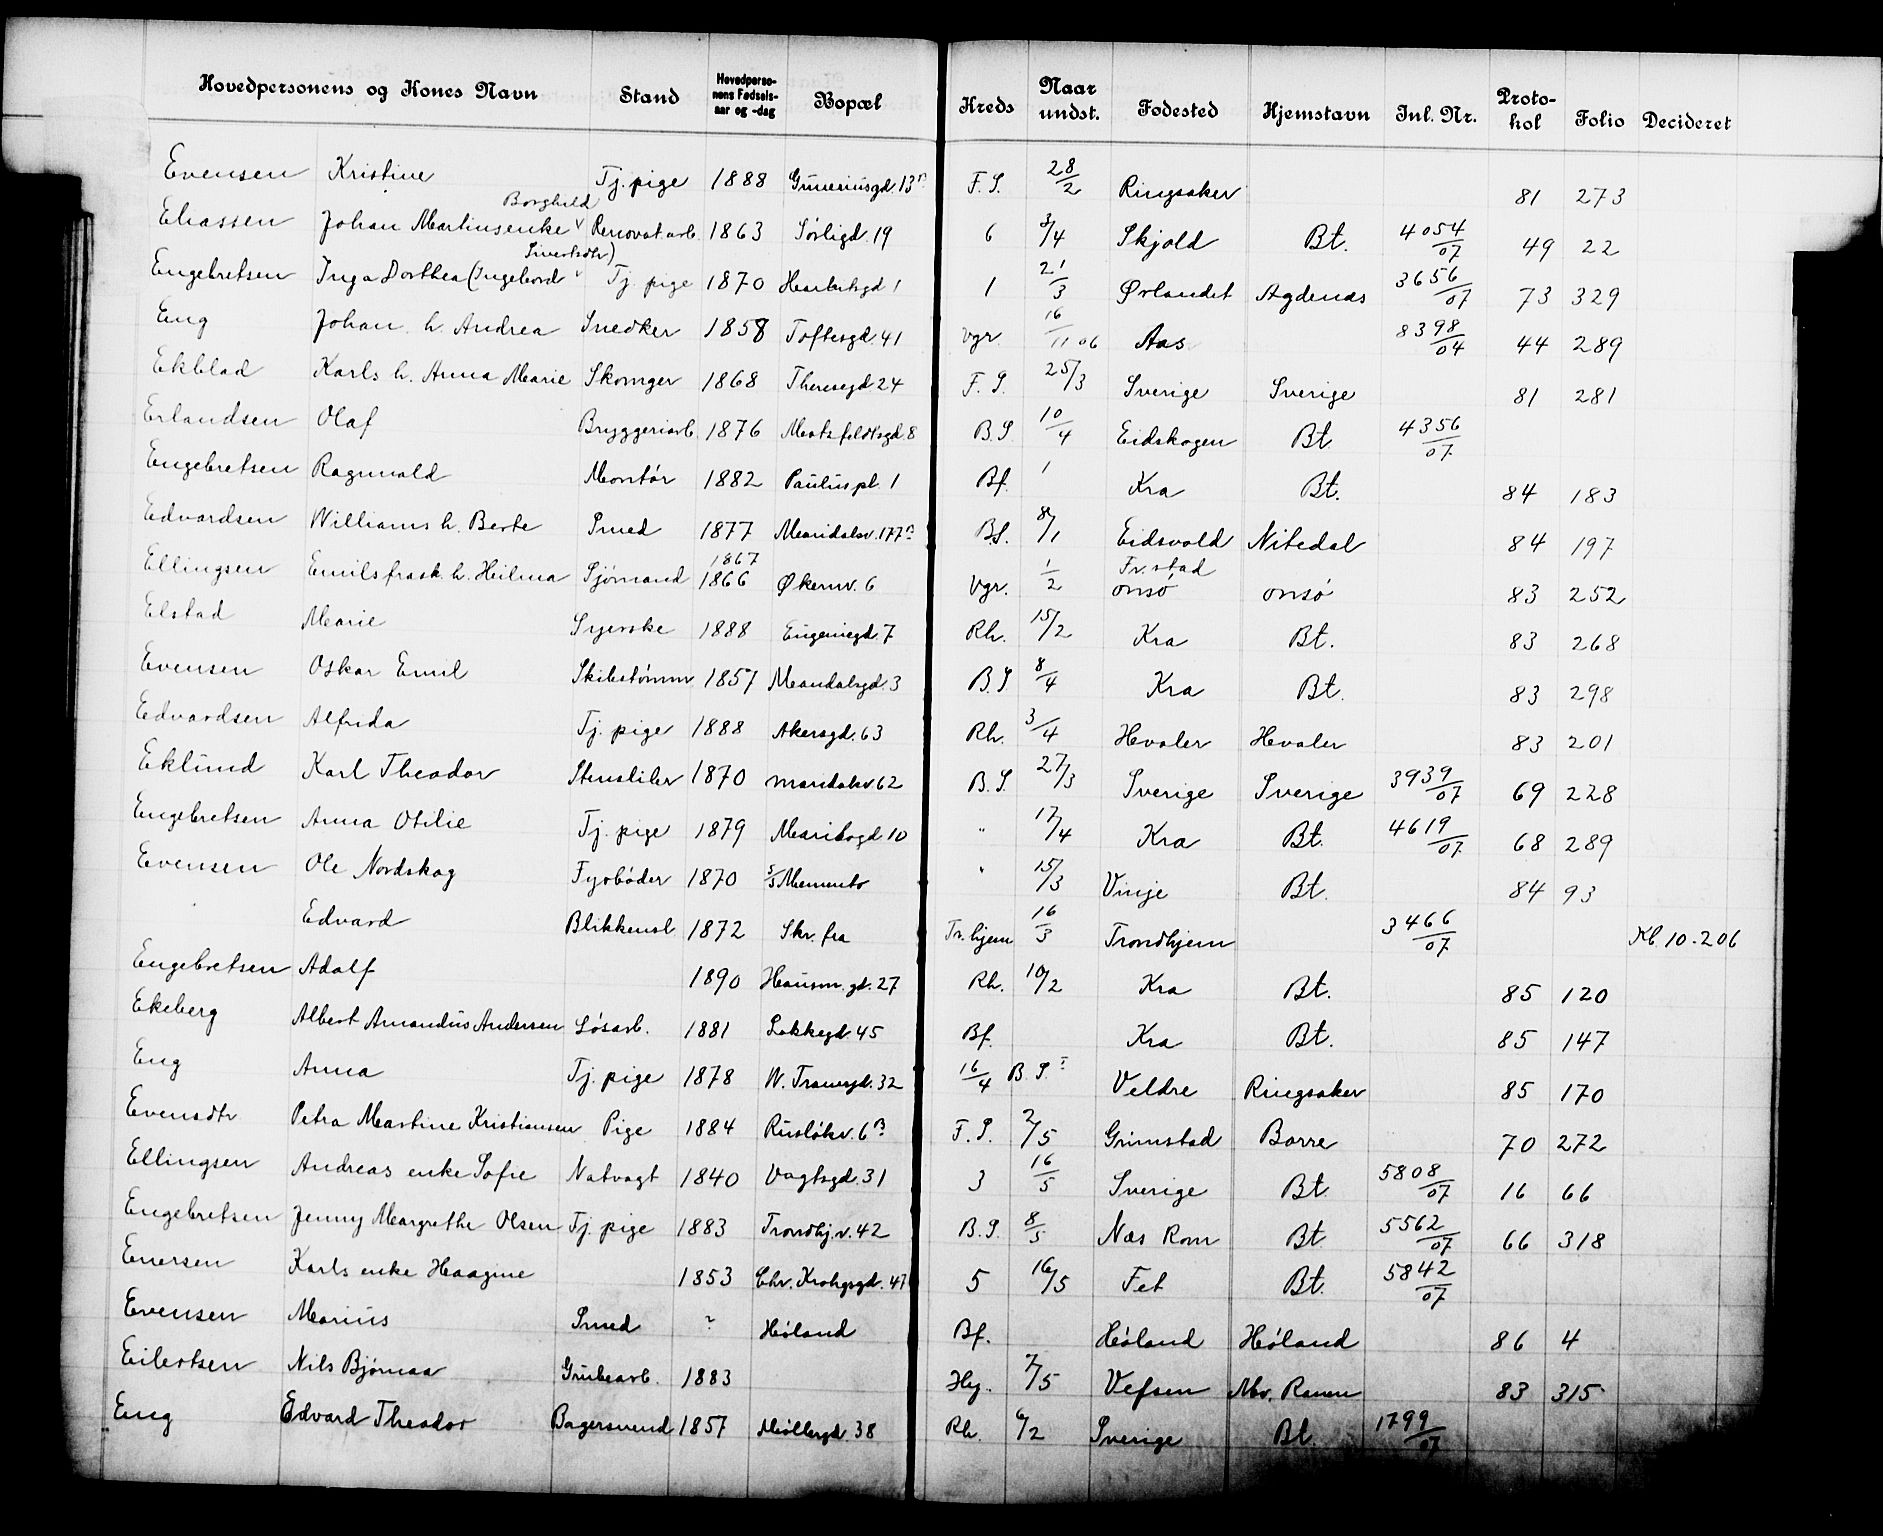 Hovedpersonens og Kones Navn Stand Hovedpersonens Fødselsaar og -dag Bopæl Kreds Naar undst. Fødested Hjemstavn Inl. Nr. Protokol Folio Decideret
Evensen Kristine Tj. pige 1888 Guneriusgd. 13 F. S. 28/2 Ringsaker 81 273
Borghild
Eliassen Johan Martinsenke Renovat.arb. 1863 Sørligd. 19 6 3/4 Skjold Bt. 4054/07 49 22
Sivertsdtr)
Engebretsen Inga Dorthea (Ingebord Tj. pige 1870 gd 1 1 21/3 Ørlandet Agdenes 3656/07 73 329
Eng Johan h. Andrea Snedker 1858 Toftesgd. 41 Vgr. 16/11 06 Aas 8398/04 44 289
Ekblad Karls h. Anna Marie Skomger 1868 Theresegd 24 F. S. 25/3 Sverige Sverige 81 281
Erlandsen Olaf Bryggeriarb. 1876 Motzfeldtsgd. 8 B. S 10/4 Eidskogen Bt. 4356/07
Engebretsen Ragnvald Montør 1882 Pauluspl. 1 Bf. 1 Kra Bt. 84 183
Edvardsen Williams h. Berte Smed 1877 Maridalsv. 177 B.S. 8/1 Eidsvold Nitedal 84 197
1867 Fr.stad
Ellingsen Emilsfrask. h. Hilma Sjømand 1866 Økernv. 6 Vgr. 1/2 onsø onsø 83 252
Elstad Marie Syerske 1888 Eugeniegd. 7 Rh. 15/2 Kra Bt. 83 268
Evensen Oskar Emil Skibstømm 1857 Mandalsgd. 3 B. S 8/4 Kra Bt. 83 298
Edvardsen Alfrida Tj. pige 1888 Akersgd. 63 Rh. 3/4 Hvaler Hvaler 83 201
Eklund Karl Theodor Stensliber 1870 maridalsv. 62 B. S. 27/3 Sverige Sverige 3939/07 69 228
Engebretsen Anna Otilie Tj. pige 1879 Maribogd 10 " 17/4 Kra Bt. 4619/07 68 289
Evensen Ole Nordskog Fyrbøder 1870 S/S Memento " 15/3 Vinje Bt. 84 93
Edvard Blikkensl. 1872 Skr. fra Tr.hjem 16/3 Trondhjem 3466/07 Kl. 10. 206
Engebretsen Adolf 1890 Hausm. gd. 27 Rh. 10/2 Kra Bt. 85 120
Ekeberg Albert Amandus Andersen Løsarb. 1881 Lakkegd 45 Bf. Kra Bt. 85 147
Eng Anna Tj. pige 1878 W. Tranesgd. 32 16/4 B. S. Veldre Ringsaker 85 170
Evensdtr Petra Martine Kristiansen Pige 1884 Rusløkv. 6 B F. S. 2/5 Grimstad Borre 70 272
Ellingsen Andreas enke Sofie Natvagt 1840 Vogtsgd. 31 3 16/5 Sverige Bt. 5808/07 16 66
Engebretsen Jenny Margrethe Olsen Tj. pige 1883 Trondhj.v. 42 B. S. 8/5 Næs Rom Bt 5562/07 66 318
Enersen Karls enke Haagine 1853 Chr. Krohgsgd. 47 5 16/5 Fet Bt. 5842/07
Evensen Marius Smed ? Høland Bf. Høland Høland 86 4
Eilertsen Nils Bjørnaa Grubearb. 1883 Hej. 7/5 Vefsen Mo, Ranen 83 315
Eng Edvard Theodor Bagersvend 1857 Møllergd. 38 Rh. 6/2 Sverige Bt. 1799/07